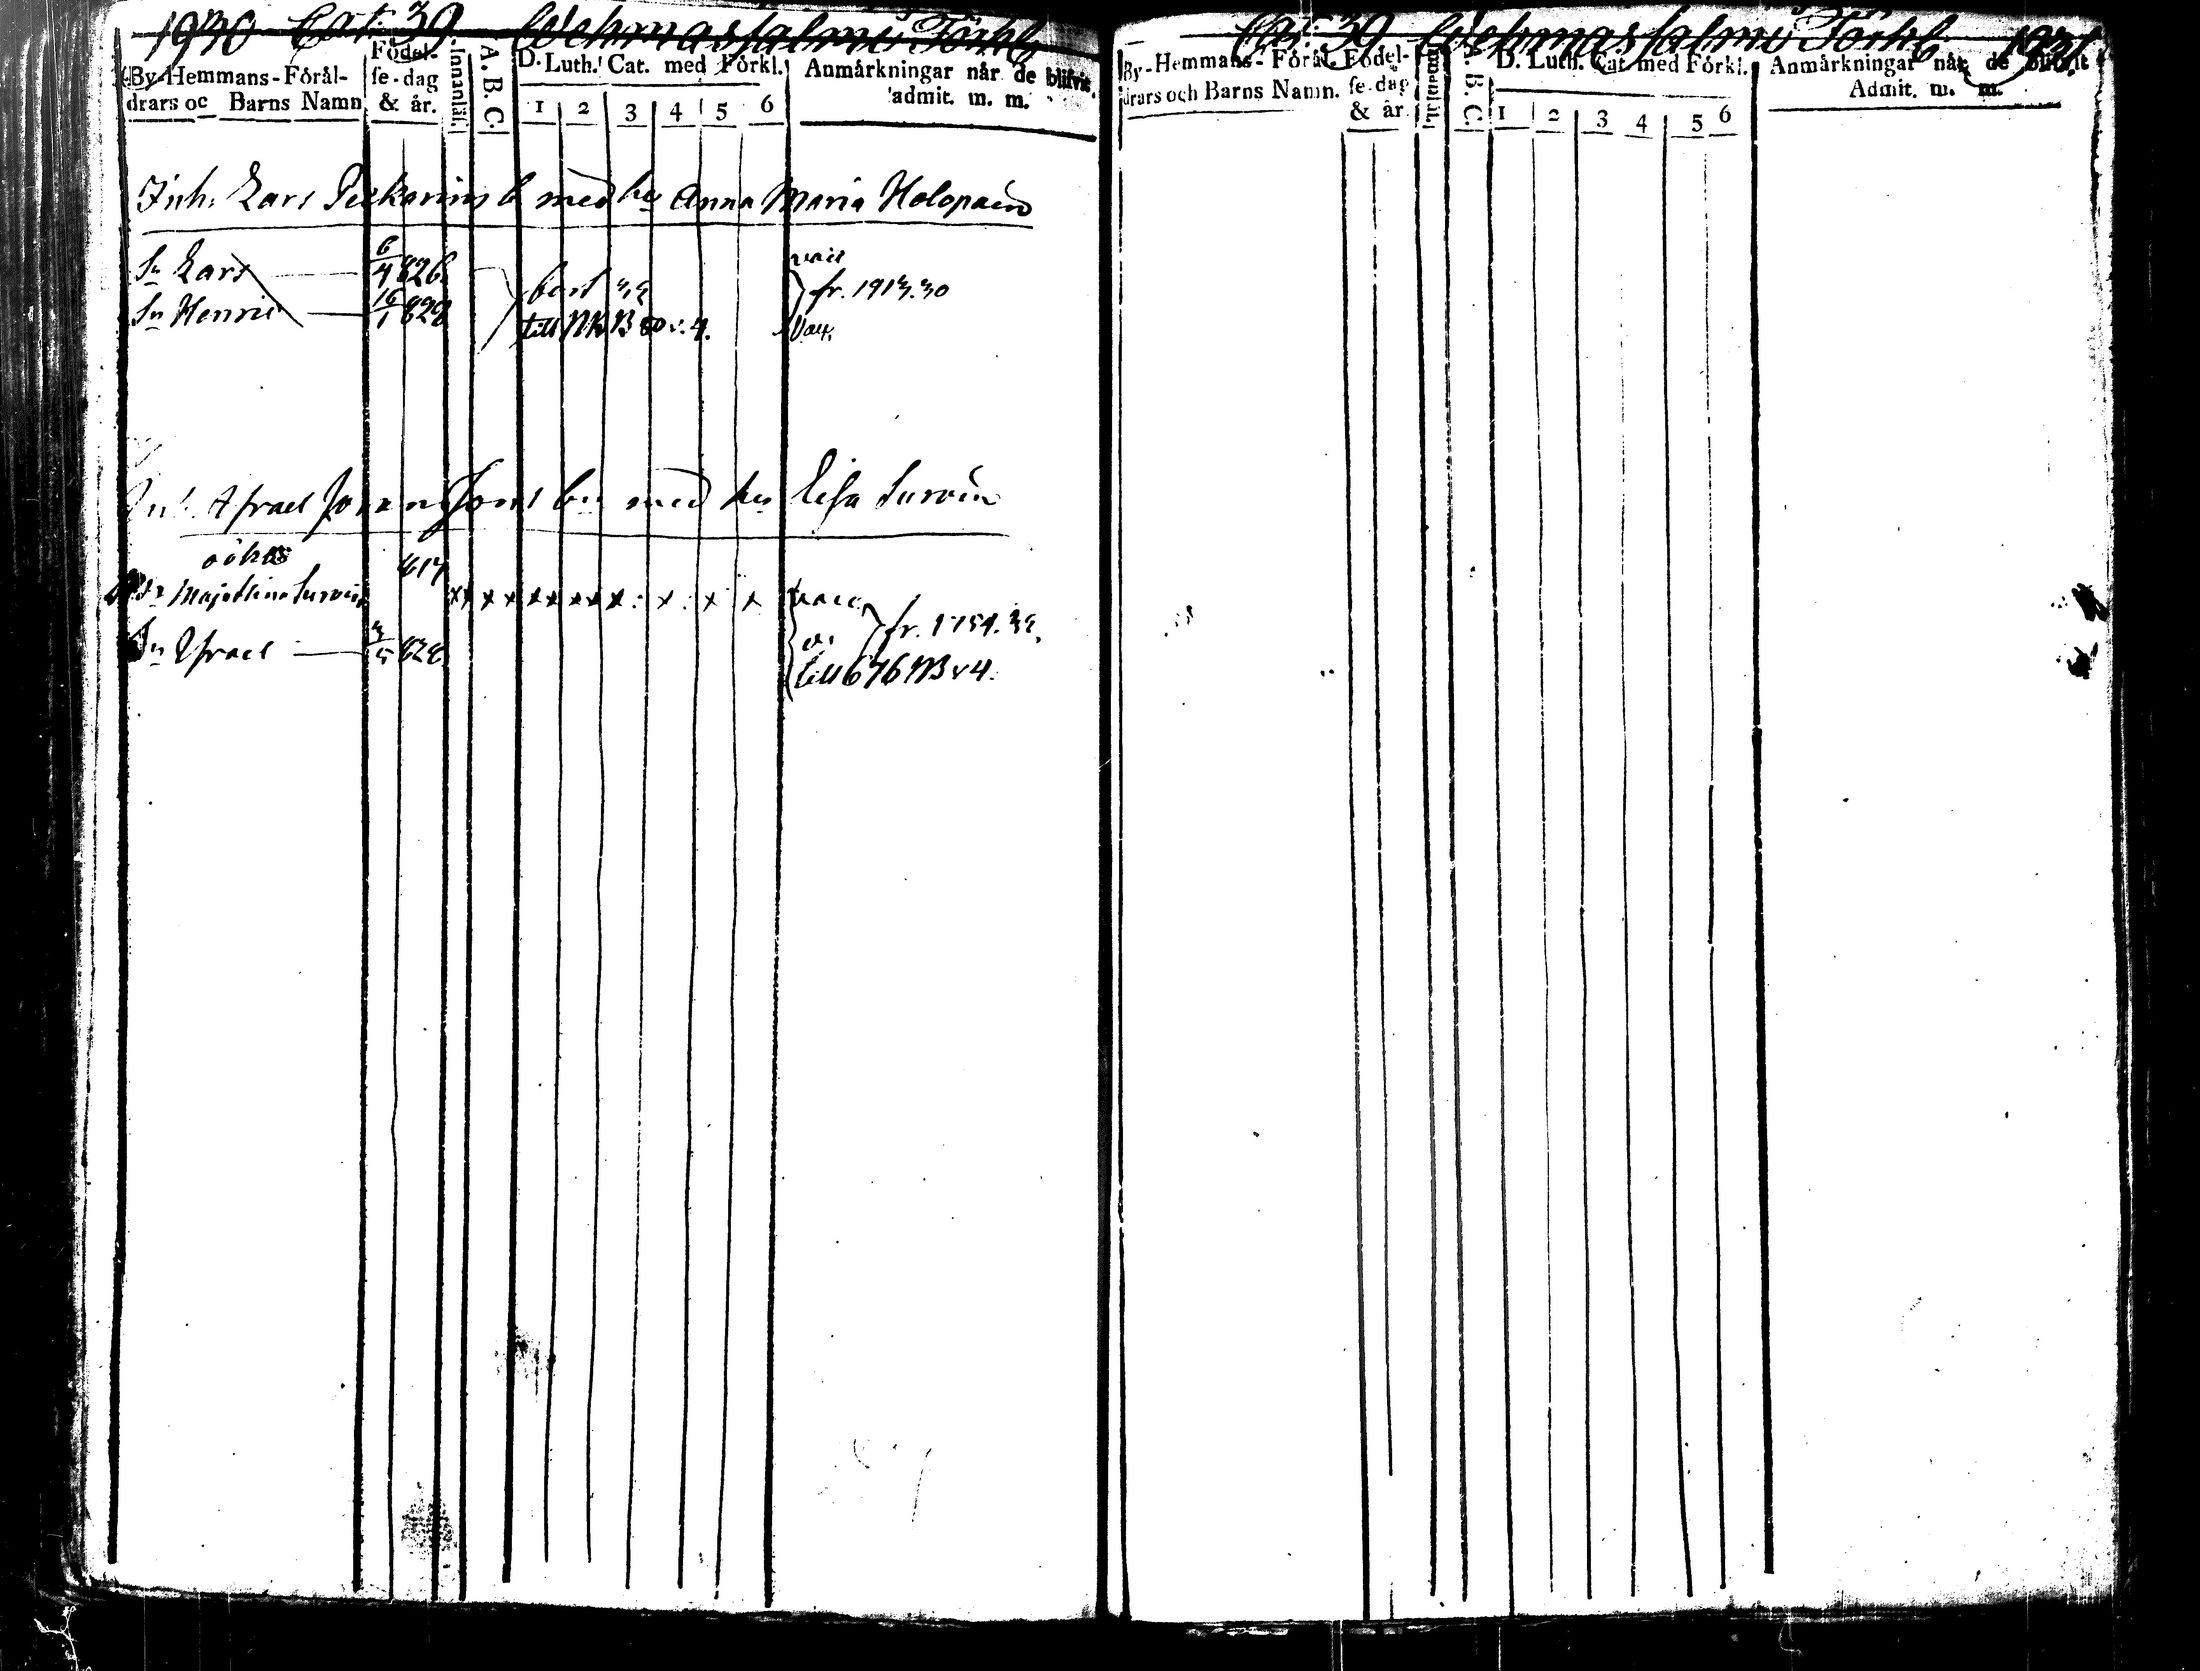 1930 Cat: 39 Wehmassalmi Förkl
By-Hemmans-Föräl-
drars oc Barns Namn
Födel-
se-dag
& år.
Innanläs.
A. B. C.
D. Luth. Cat. med Förkl.
1 2 3 4 5 6
Anmärkningar når de blifvit
admit. m. m.
Inh. Lars Pekarins b med hu Anna Maria Holopain
Sn Lars 6/4 826
Sn Henric 16/1 828
bort 32
till NB B 80 v. 4.
vac
fr. 1913.30
Vac.
Inh. Israel Johansons bn med hu Lisa Survin
817
dr Majastina Survin x x x x x x x x x x x x x vacc
Sn Israel 3/5 828
fr. 1754. 32.
till 676 NB v 4.
Cat: 39 Wehmassalmi Förkl 1931
By-Hemmans-Föräl.
drars och Barns Namn.
Födel-
se-dag
& år
A. B. C.
D. Luth. Cat med Förkl.
1 2 3 4 5 6
Anmärkningar når de blifvit
Admit. m. m.